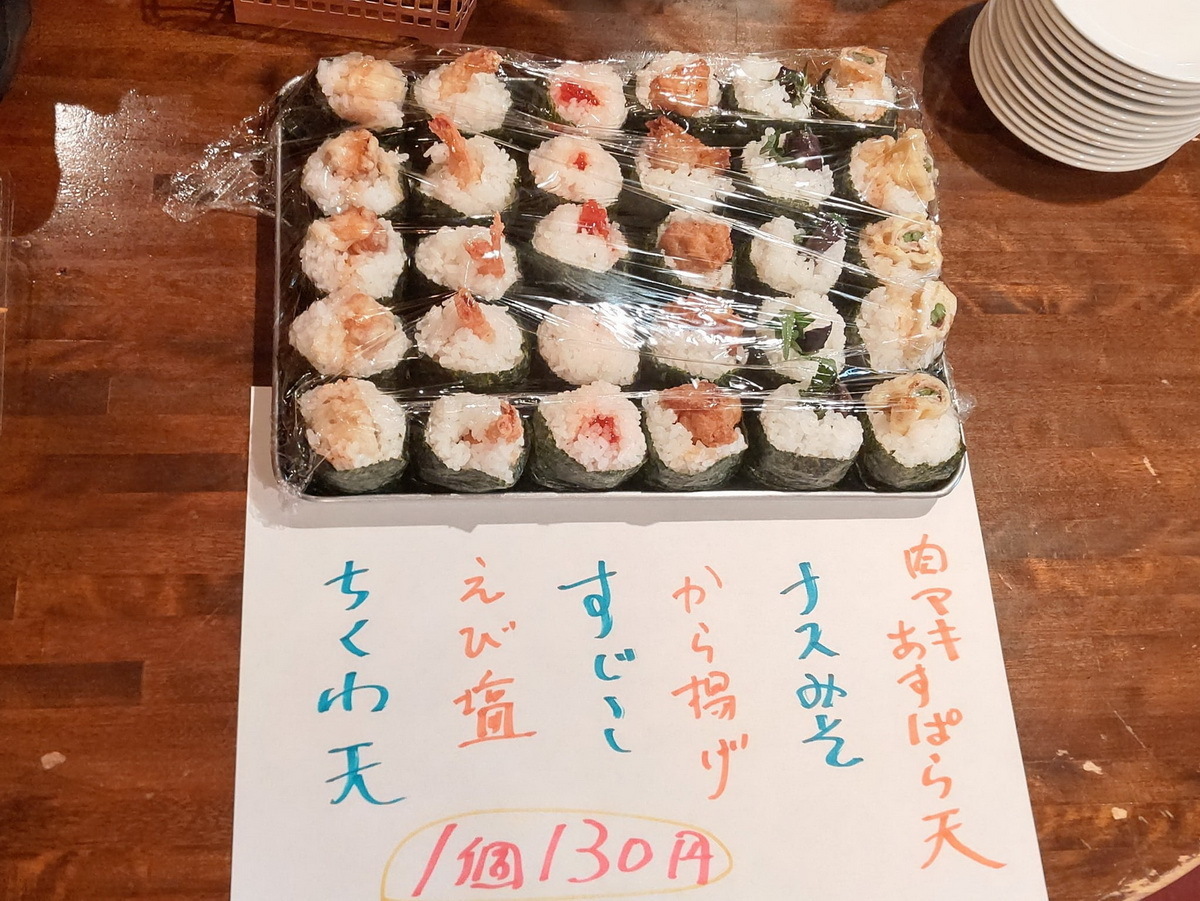 肉マキあすぱら天
ナスみそ
から揚げ
すじこ
えび塩
ちくわ天
1個130円